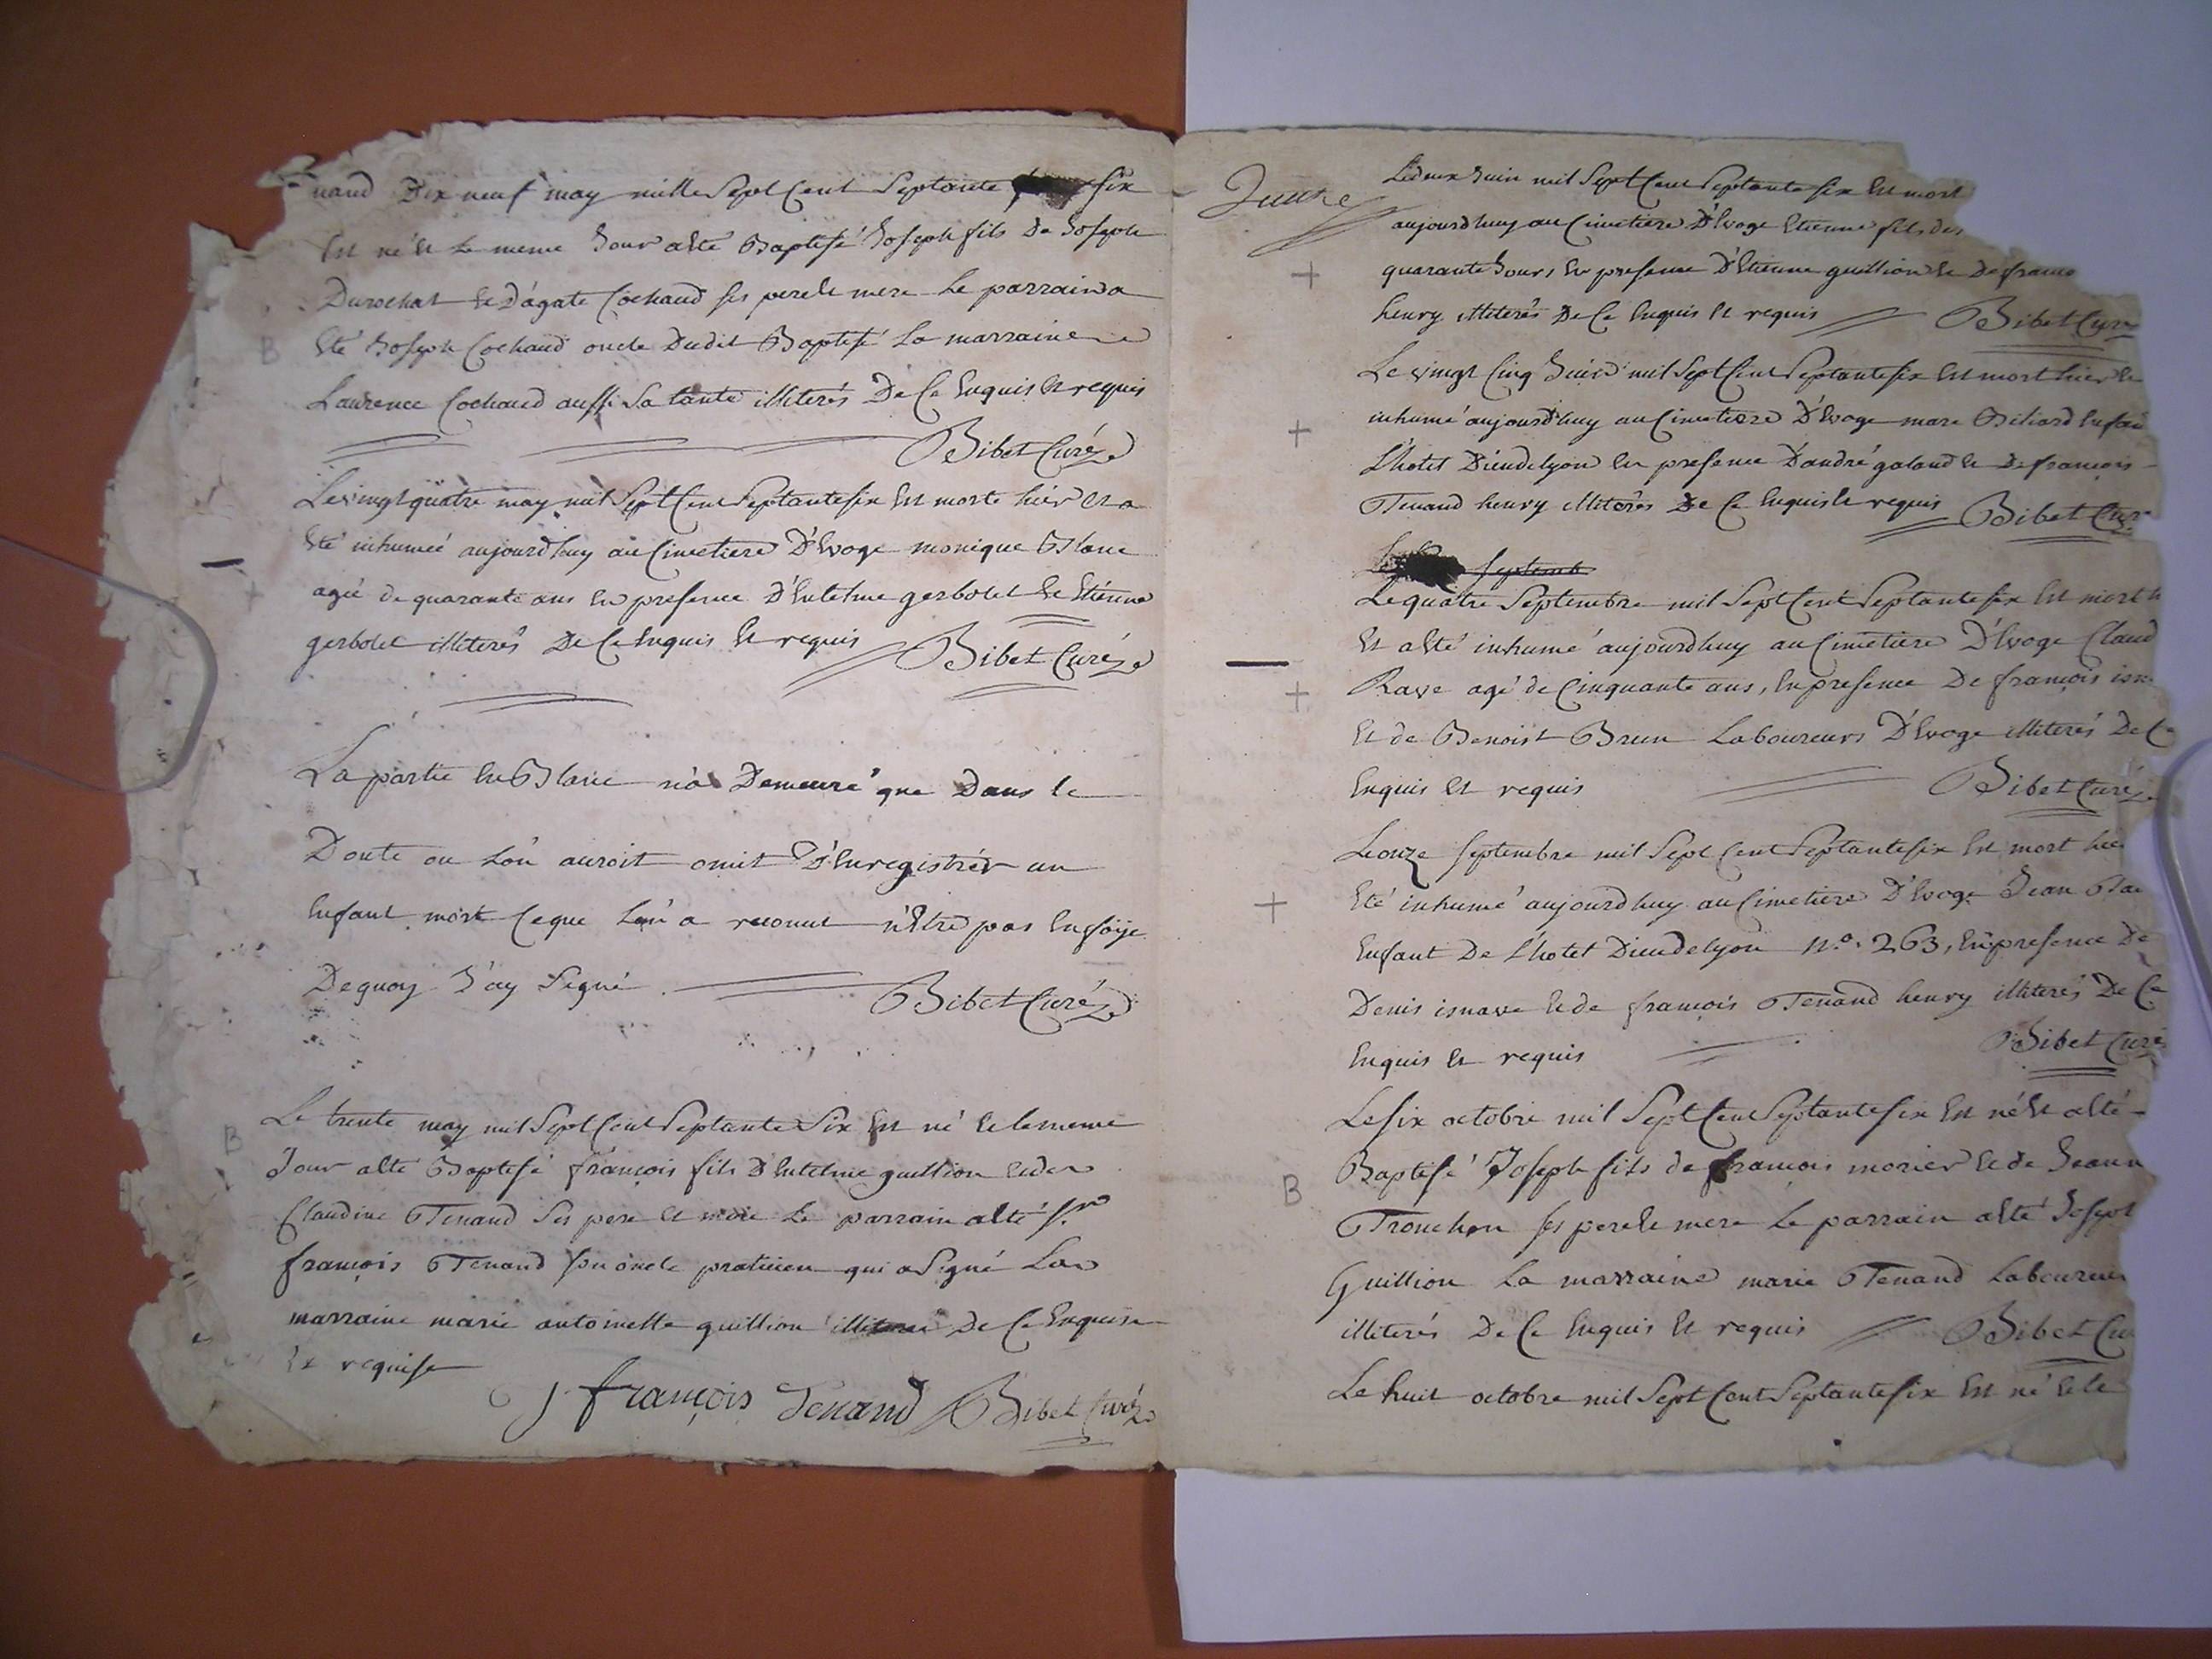 nand Dix neuf may mille Sept Cent Septante six
Est né Et Le meme Jour a Eté Baptisé Joseph fils De Joseph
Durochat Et D'agate Cochaud ses pere Et mere Le parrain a
Eté Joseph Cochaud oncle Dudit Baptisé La marraine
Laurence Cochaud aussi Sa tante illiterés De Ce Enquis Et requis
Bibet Curé
Le vingt quatre may mil Sept Cent Septante six Est morte hier Et a
Eté inhumée aujourd'huy au Cimetiere D'Evoge monique Blanc
agée de quarante ans En presence D'Entelme gerbolet Et Etienne
gerbolet illiterés De Ce Enquis Et requis Bibet Curé
La partie En Blanc n'a Demeuré que Dans le
Doute ou L'on auroit omit D'Enregistrér un
Enfant mort Ce que L'on a reconut n'Etre pas En foÿe
De quoy J'ay Signé Bibet Curé
B
Le trente may mil Sept Cent Septante Six Est né Et le meme
Jour a Eté Baptisé françois fils D'Entelme guillion Et de
Claudine Tenand Ses pere Et mere Le parrain a Eté Sr
françois Tenand son oncle praticien qui a Signé La
marraine marie antoinette guillion De Ce Enquise
Et requise
j françois Tenand Bibet Curé
Le deux Juin mil Sept Cent Septante six Est mort
aujourd'huy au Cimetiere D'Evoge Etienne fils de
+ quarante Jours En presence D'Etienne guillion Et De franc
henry illiterés De Ce Enquis Et requis Bibet Curé
Le vingt Cinq Juin mil Sept Cent Septante six Est mort hier Et
+ inhumé aujourd'huy au Cimetiere D'Evoge marc Biliard Enfan
L'hotel Dieu de lyon En presence D'andré galand Et De françois
Tenand henry illiterés De Ce Enquis Et requis Bibet Cur
septemb
Le quatre Septembre mil Sept Cent Septante six Est mort h
Et a Eté inhumé aujourd'huy au Cimetiere D'Evoge Claud
+ Rave agé de Cinquante ans, En presence De françois isn
Et de Benoist Brun Laboureurs D'Evoge illiterés De Ce
Enquis Et requis Bibet Curé
Le onze septembre mil Sept Cent Septante six Est mort hie
+ Eté inhumé aujourd'huy au Cimetiere D'Evoge Jean
Enfant De L'hotel Dieu de lyon N.o 263, En presence De
Denis isnave Et de françois Tenand henry illiterés De Ce
Enquis Et requis Bibet Curé
Le six octobre mil Sept Cent Septante six Est né Et a Eté
B Baptisé Joseph fils de françois morier Et de Jeann
Tronchon ses pere Et mere Le parrain a Eté Joseph
Guillion La marraine marie Tenand Laboureur
illiterés De Ce Enquis Et requis Bibet Cu
Le huit octobre mil Sept Cent Septante six Est né Et le